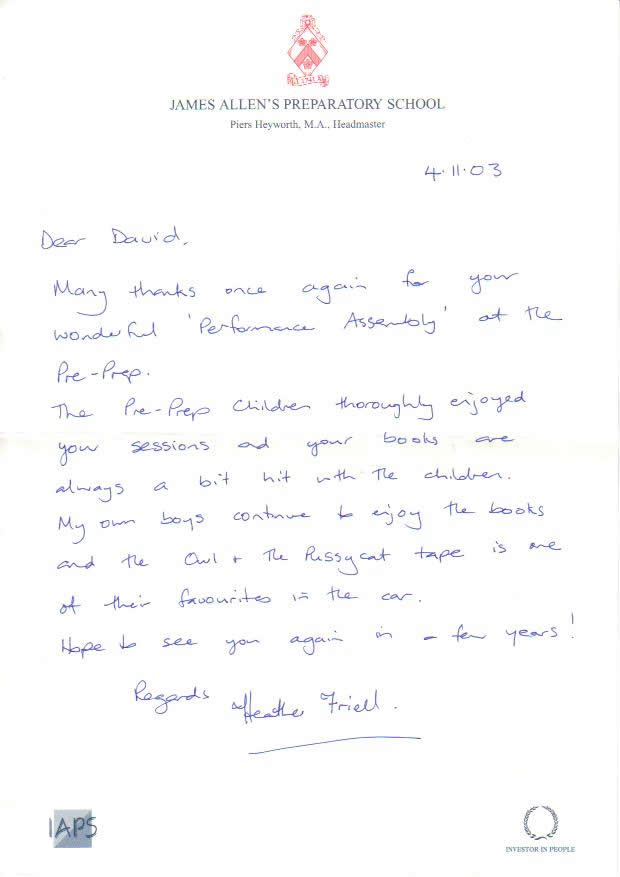 JAMES ALLEN'S PREPARATORY SCHOOL
Piers Heyworth, M.A., Headmaster
4.11.03
Dear David,
Many thanks once again for your
wonderful 'Performance Assembly' at the
Pre-Prep.
The Pre-Prep children thoroughly enjoyed
your sessions and your books are
always a bit hit with the children.
My own boys continue to enjoy the books
and the Owl + the Pussycat tape is one
of their favourites in the car.
Hope to see you again in a few years!
Regards Heather Friell.
IAPS
INVESTOR IN PEOPLE